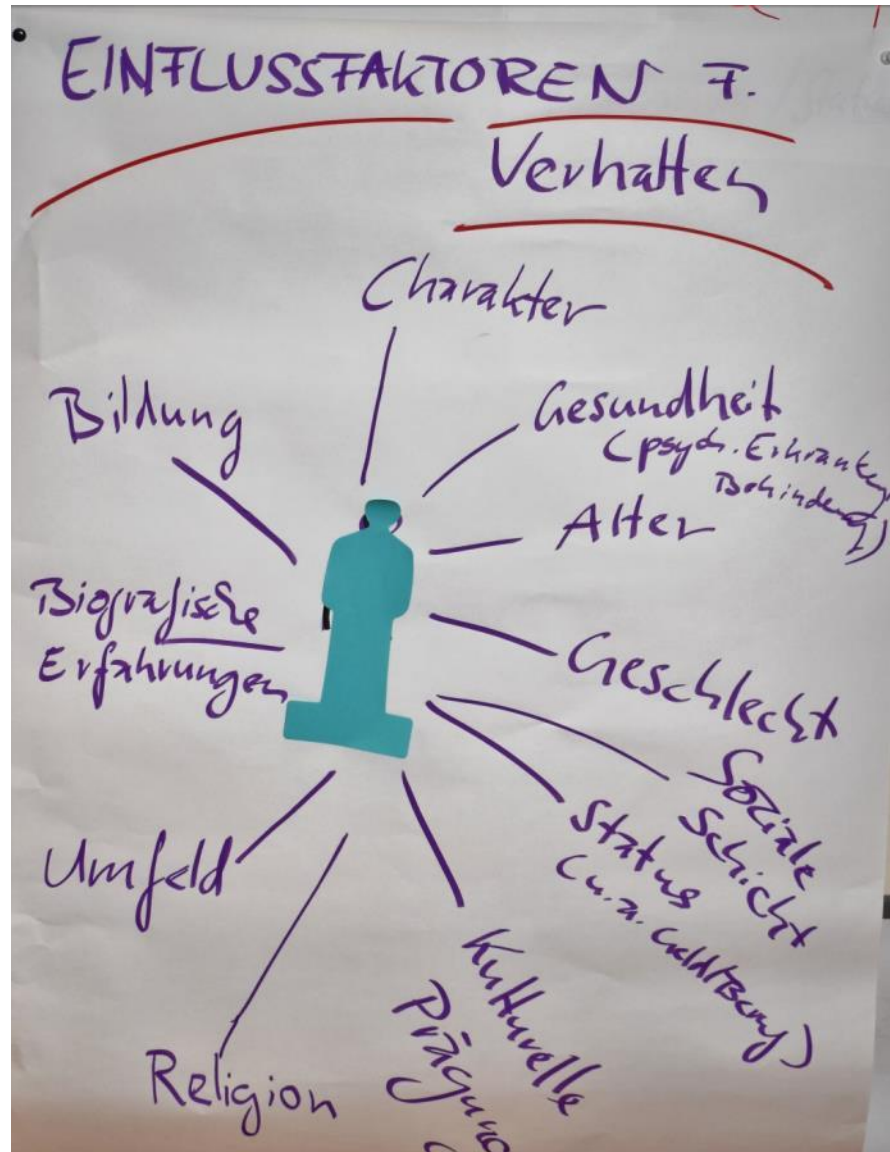 EINFLUSSFAKTOREN F.
Verhalten
Charakter
Gesundheit
(psych. Erkrankung
Behinderung)
Alter
Geschlecht
Soziale
Schicht
Status
(u.a.
Kulturelle
Prägung
Religion
Umfeld
Biografische
Erfahrungen
Bildung